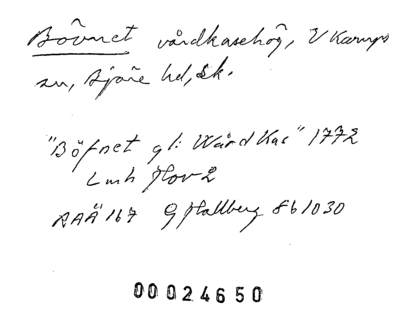 Bövnet vårdkasehög, V Karups
sn, Bjäre hd, Sk.
"Böfnet gl: Wård Kas" 1772
Lmh Hov 2
RAÄ 167 G Hallberg 861030
00024650